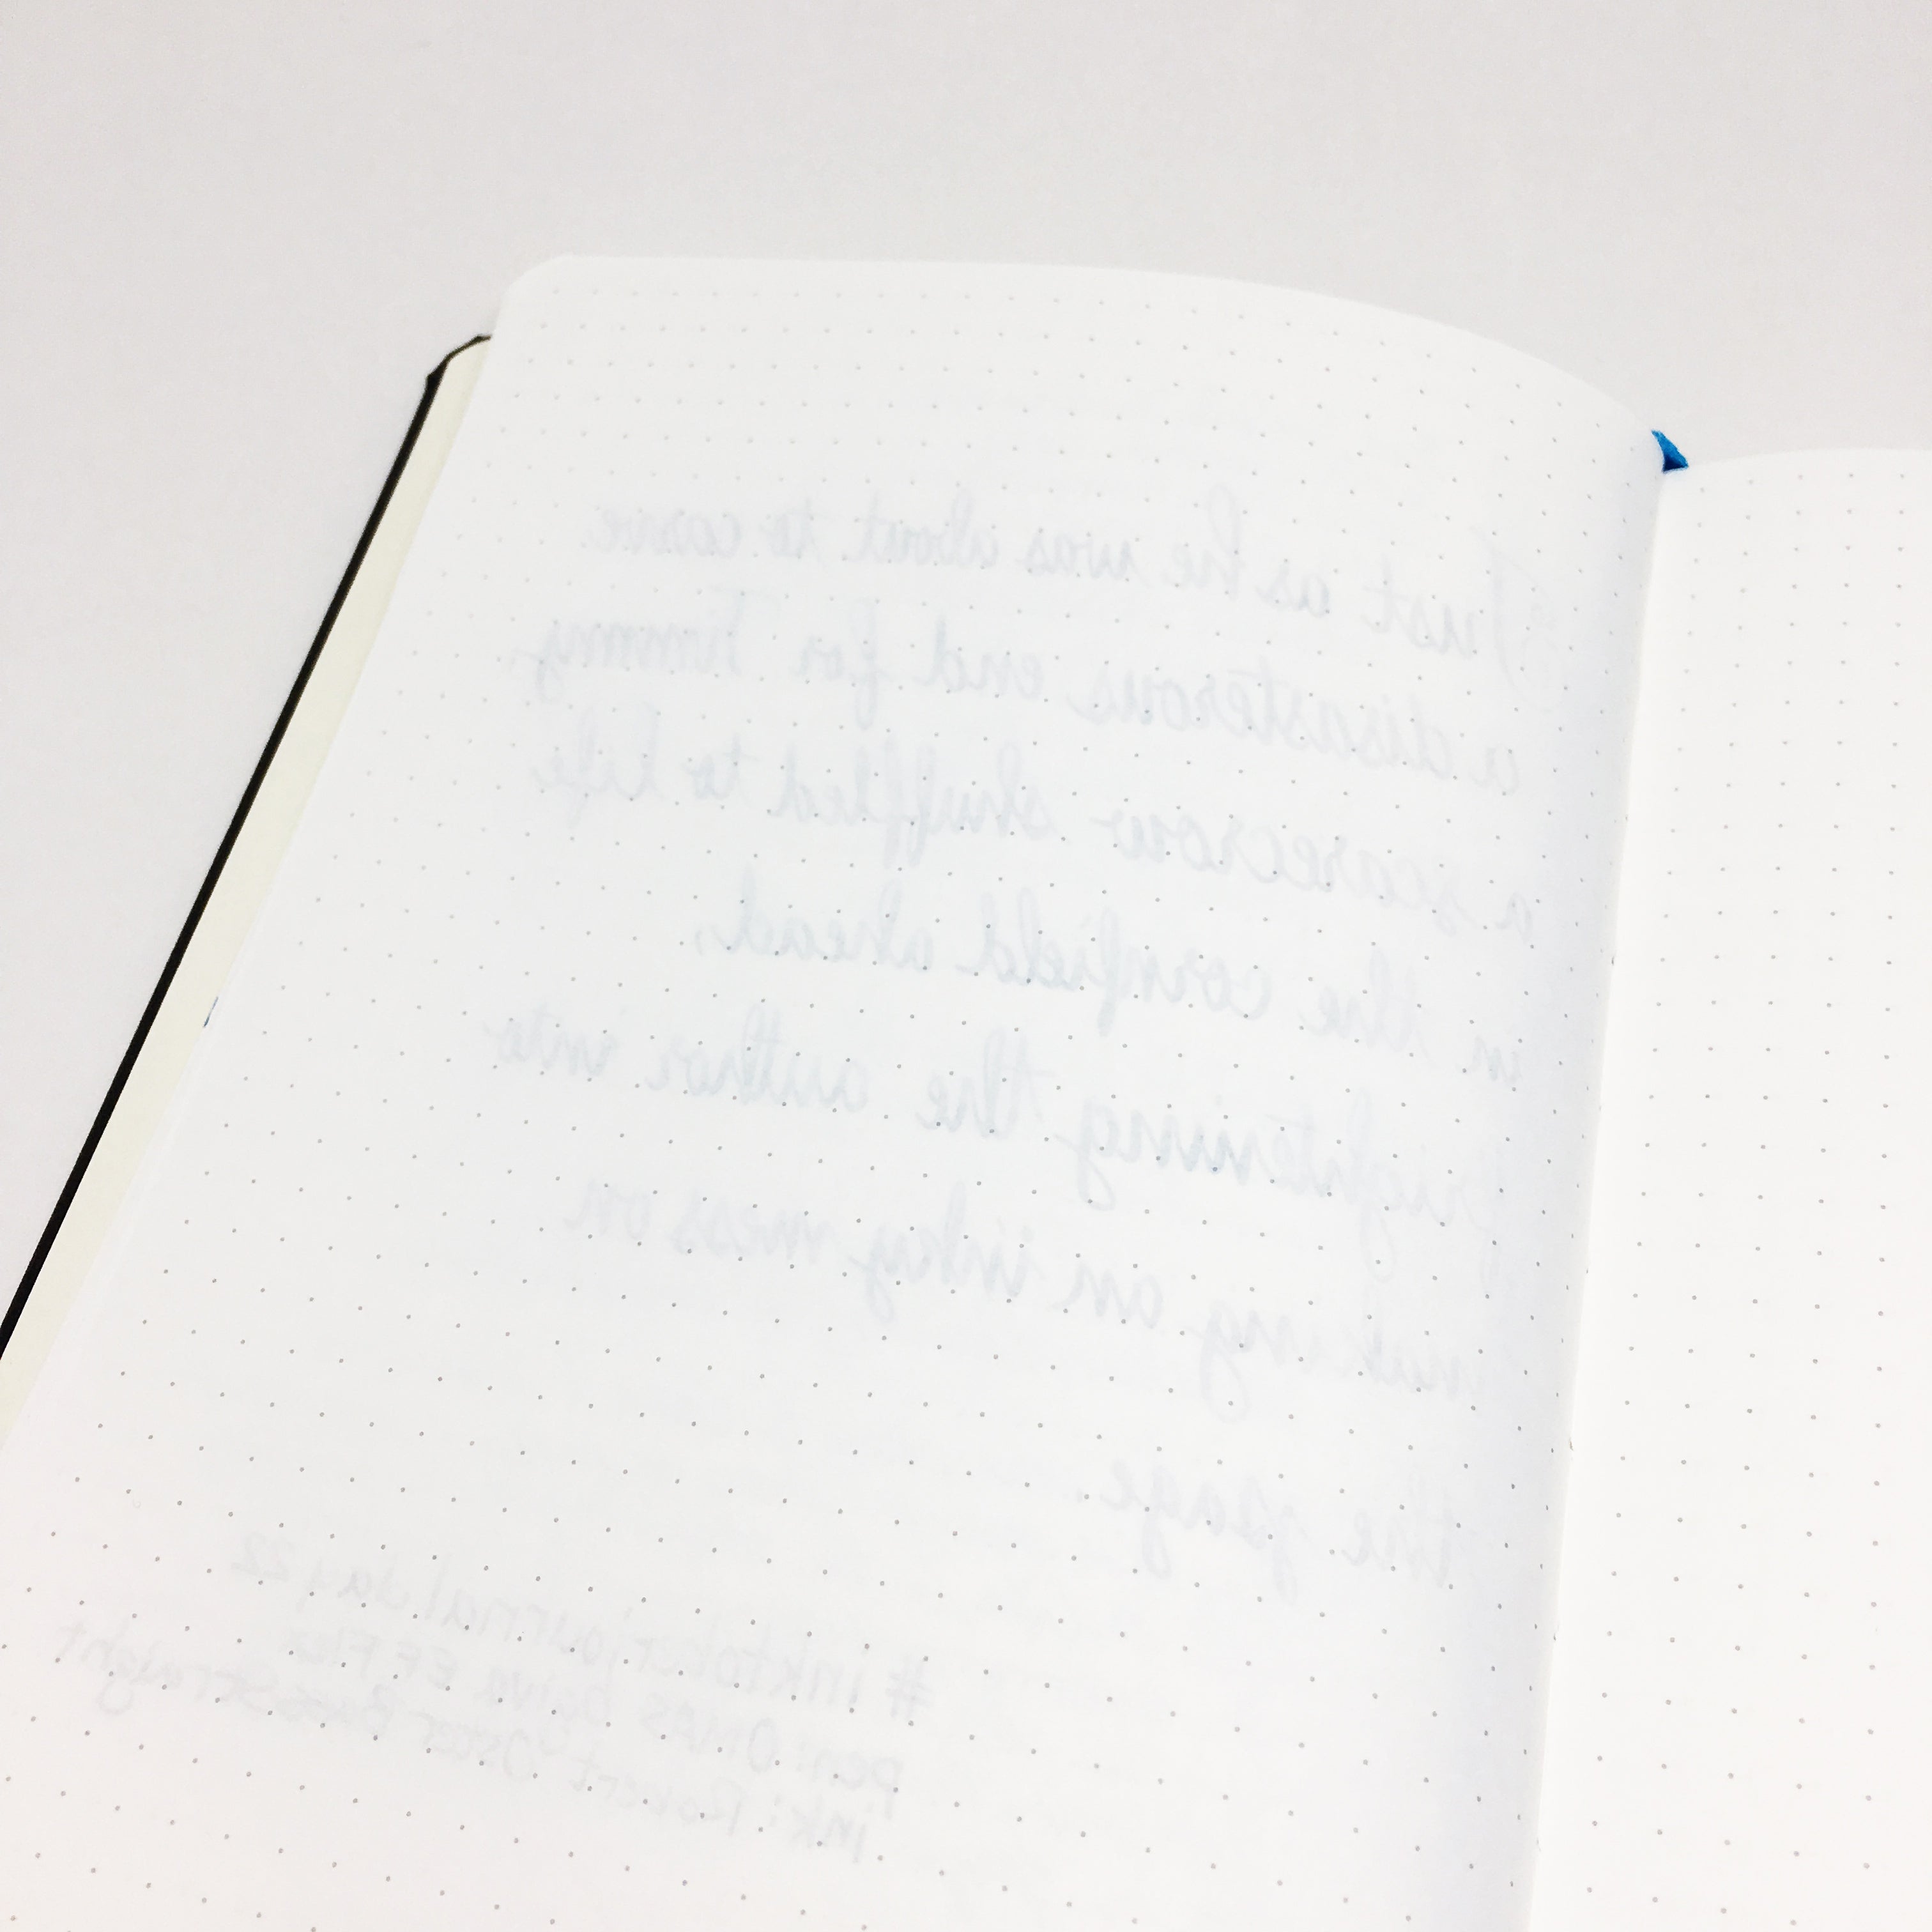 Just as he was about to carve
a disasterous end for Timmy,
a scarecrow shuffled to life
in the cornfield ahead,
frightening the author into
making an inky mess on
the page.
#inktoberjournal day 22
pen: OMAS Bojva EF Flex
ink: Robert Oster Bass Straight